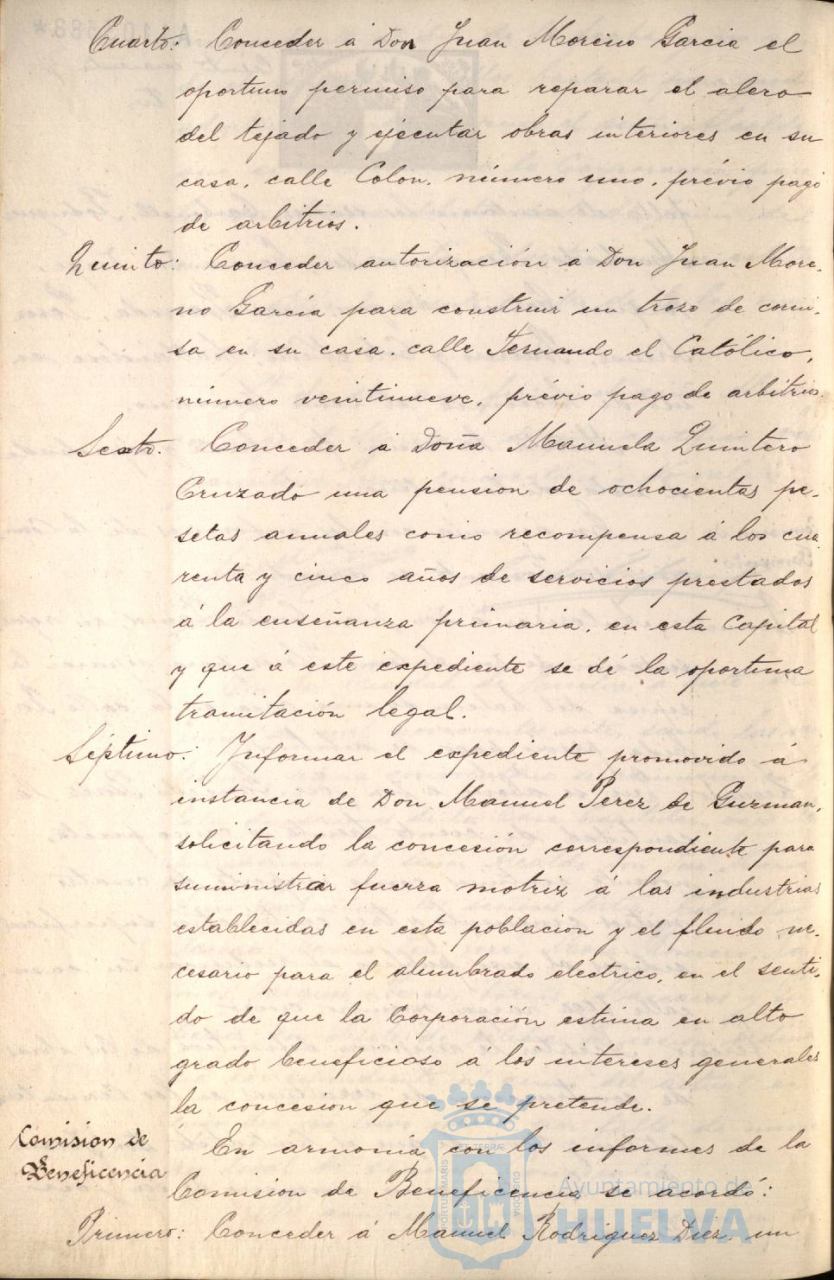 Cuarto: Conceder á Don Juan Moreno Garcia el
oportuno permiso para reparar el alero
del tejado y ejecutar obras interiores en su
casa, calle Colon, número uno, prévio pago
de arbitrios.
Quinto: Conceder autorización á Don Juan More-
no García para construir un trozo de corni-
sa en su casa, calle Fernando el Católico,
número veintinueve, prévio pago de arbitrios.
Sexto. Conceder á Doña Manuela Quintero
Cruzado una pension de ochocientas pe-
setas anuales como recompensa á los cua-
renta y cinco años de servicios prestados
á la enseñanza primaria, en esta Capital
y que á este expediente se dé la oportuna
tramitación legal.
Séptimo: Informar el expediente promovido á
instancia de Don Manuel Perez de Guzman,
solicitando la concesión correspondiente para
suministrar fuerza motriz á las industrias
establecidas en esta poblacion y el fluido ne-
cesario para el alumbrado eléctrico, en el senti-
do de que la Corporación estima en alto
grado beneficioso á los intereses generales
la concesion que se pretende.
Comision de
Beneficencia
En armonía con los informes de la
Comision de Beneficencia se acordó:
Primero: Conceder á Manuel Rodriguez Diez un
Ayuntamiento de
HUELVA